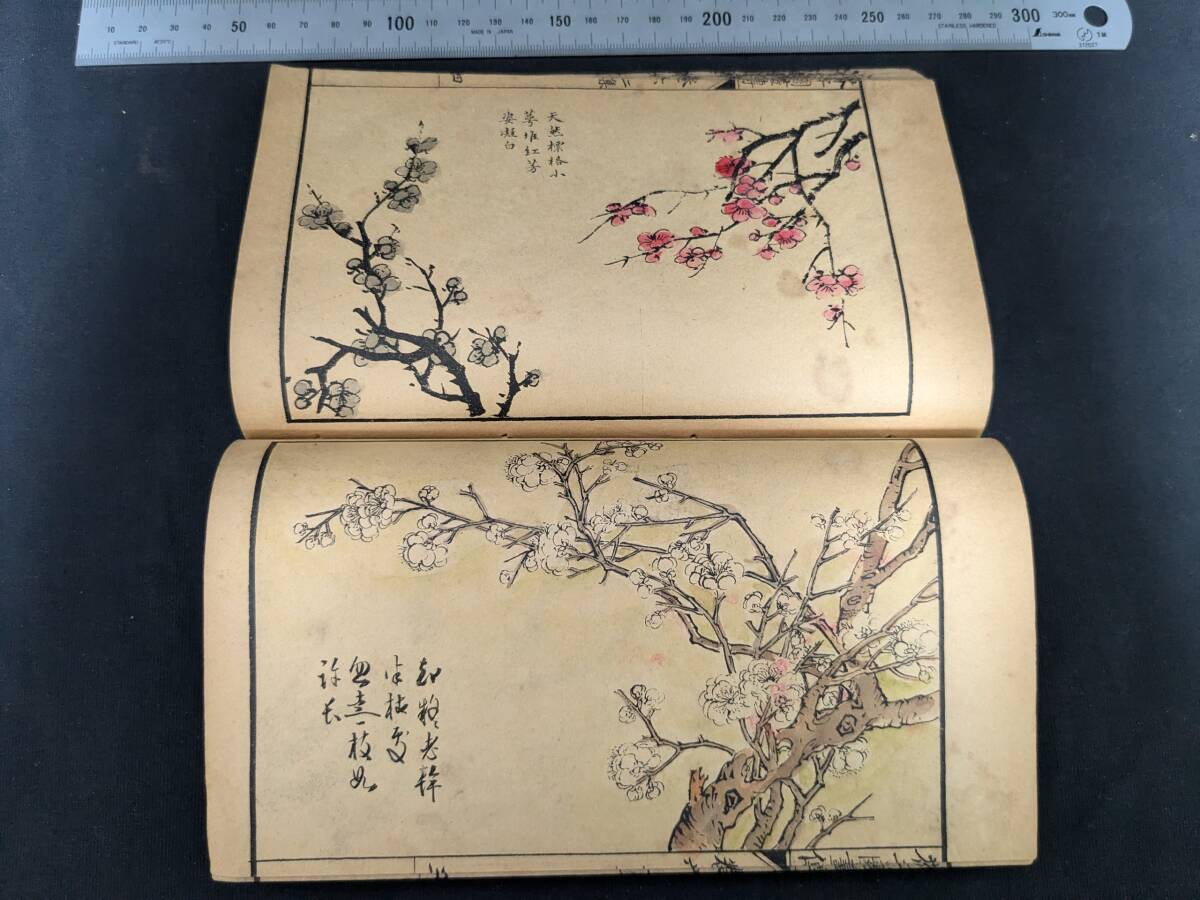 10 20 30 40 50 60 70 80 90 100 110 120 130 140 150 160 170 180 190 200 210 220 230 240 250 260 270 280 290 300 300mm
MADE IN JAPAN
STAINLESS HARDENED
天然標格小
萼堆紅芳
姿凝白
却疑老幹
半枯處
忽走一枝如
許長